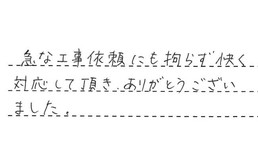 急な工事依頼にも拘らず快く
対応して頂き、ありがとうござい
ました。